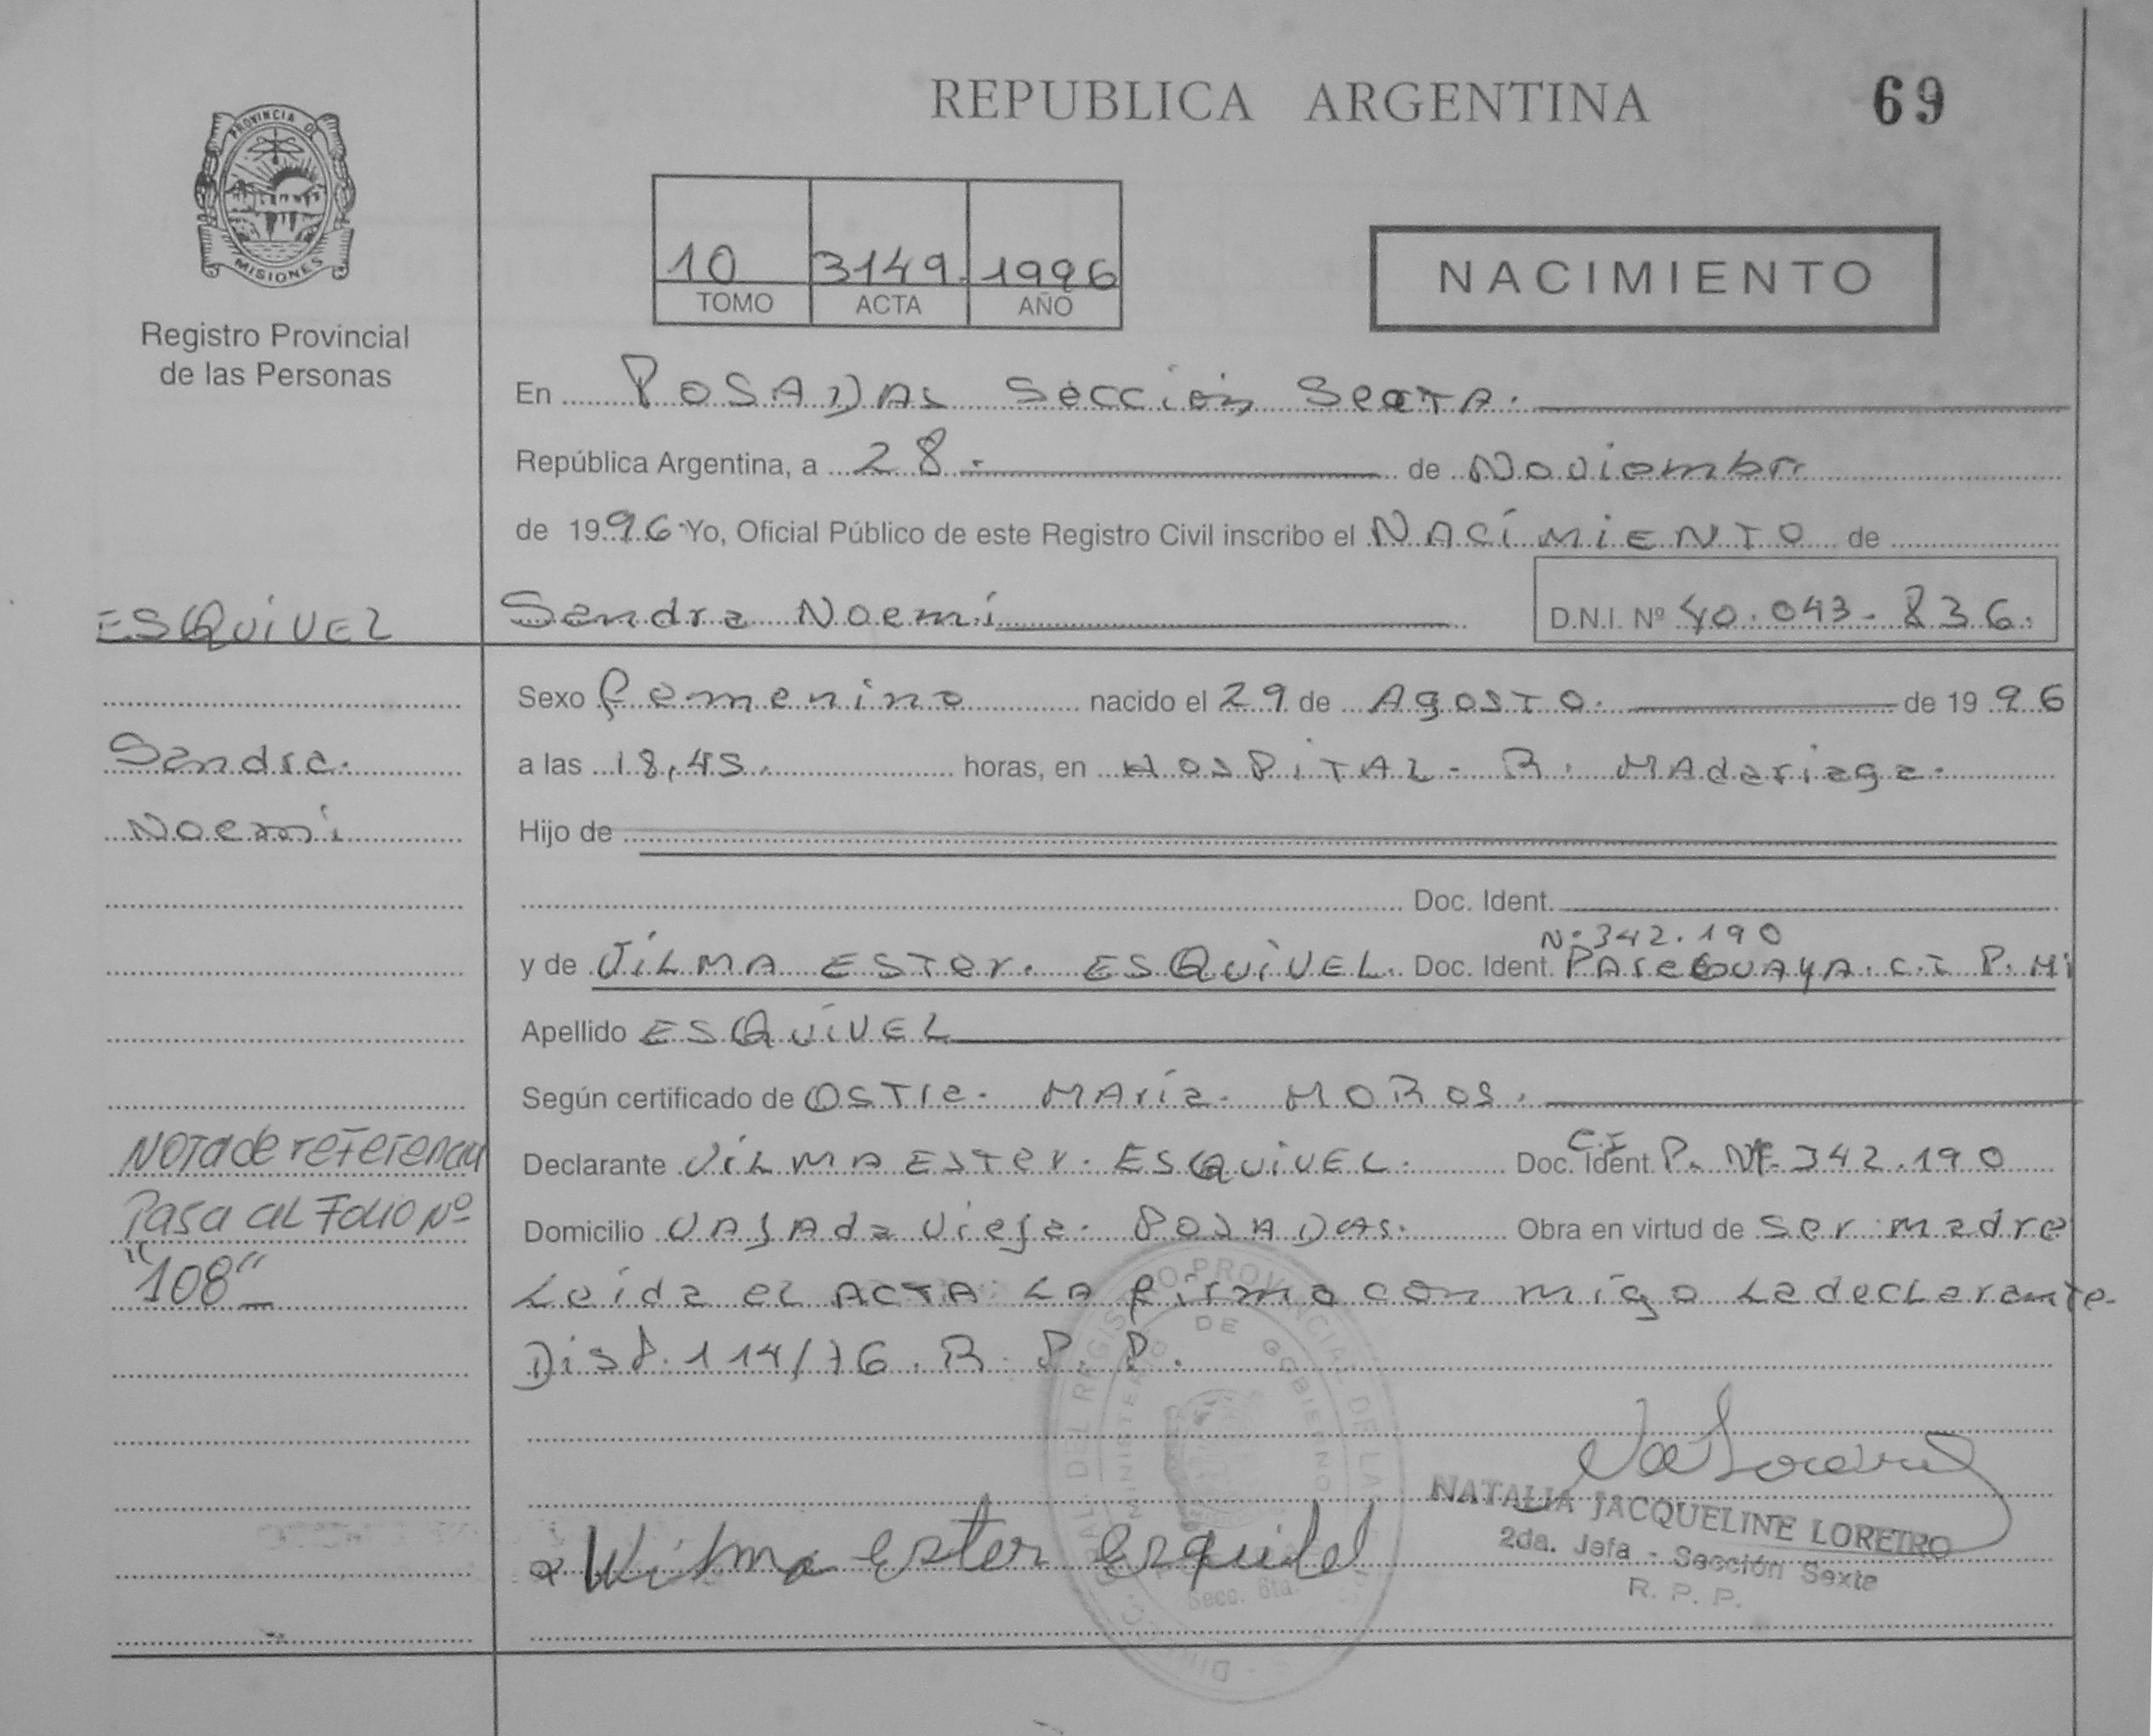 REPUBLICA ARGENTINA
69
PROVINCIA DE
MISIONES
Registro Provincial
de las Personas
10 3149. 1996
TOMO ACTA AÑO
NACIMIENTO
En POSADAS Sección Sexta.
República Argentina, a 28.- de Noviembre
de 1996 Yo, Oficial Público de este Registro Civil inscribo el NACIMIENTO de
ESQUIVEL
Sandra Noemí
D.N.I. Nº 40.043-836.
Sexo femenino nacido el 29 de AgosTO. de 1996
Sandra.
a las 18,45. horas, en HOSPITAL - R. MAdariaga.
Noemí
Hijo de
Doc. Ident.
Nº 342.190
y de VILMA ESTer. ESQUIVEL. Doc. Ident. PAraGUAYA. C.I P. Mi
Apellido ESQUIVEL
Según certificado de OSTra. MAría. MOROS.
Nota de referencia
Declarante VILMA ESTer. ESQUIVEL. Doc. Ident C.I P. Nº 342.190
Pasa al Folio Nº
Domicilio VAJAda Vieja. POSADAS. Obra en virtud de ser madre
"108"
Leída el ACTA LA firma con migo La decLarante.
Disp. 114/76. R. P. P.
NATALIA JACQUELINE LOREIRO
2da. Jefa - Sección Sexta
R. P. P.
Wilma Ester Esquivel
MINISTERIO DE GOBIERNO
Secc. 6ta.